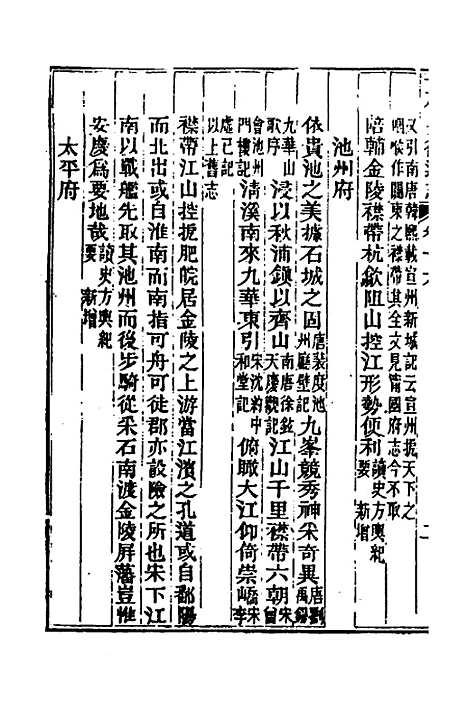 又引南唐韓熙載宣州新城記云宣州拔天下之
咽喉作關東之襟帶其全文見甯國府志今不取
陪輔金陵襟帶杭歙阻山控江形勢便利讀史方輿紀要 新增
池州府
依貴池之美據石城之固唐裴度池州廳壁記九峯競秀神采奇異唐劉禹錫
九華山歌序浸以秋浦鎮以齊山南唐徐鉉天慶觀記江山千里襟帶六朝宋曾
會池州門樓記淸溪南來九華東引宋沈豹中和堂記俯瞰大江仰倚崇嶠宋李
虛己記以上舊志
襟帶江山控扼肥皖居金陵之上游當江濱之孔道或自鄱陽
而北出或自淮南而南指可舟可徒郡亦設險之所也宋下江
南以戰艦先取其池州而後步騎從采石南渡金陵屏藩豈惟
安慶爲要地哉讀史方輿紀要 新增
太平府